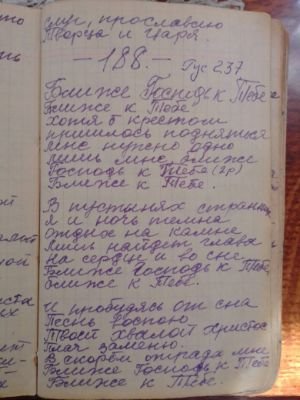 слуг, прославлю
Творца и Царя.
-188.- Гус 237
Ближе Господь к Тебе
Ближе к Тебе
Хотя б крестом
пришлось подняться
мне нужно одно
лишь мне ближе
Господь к Тебе (2р)
Ближе к Тебе.
В пустынях странник
я и ночь темна
отдых на камне
лишь найдет глава
на сердце и во сне
Ближе Господь к Тебе,
ближе к Тебе.
И пробудясь от сна
Песнь воспою
Твоей хвалой Христос
плач заменю.
В скорби отрада мне
Ближе Господь к Тебе
Ближе к Тебе.